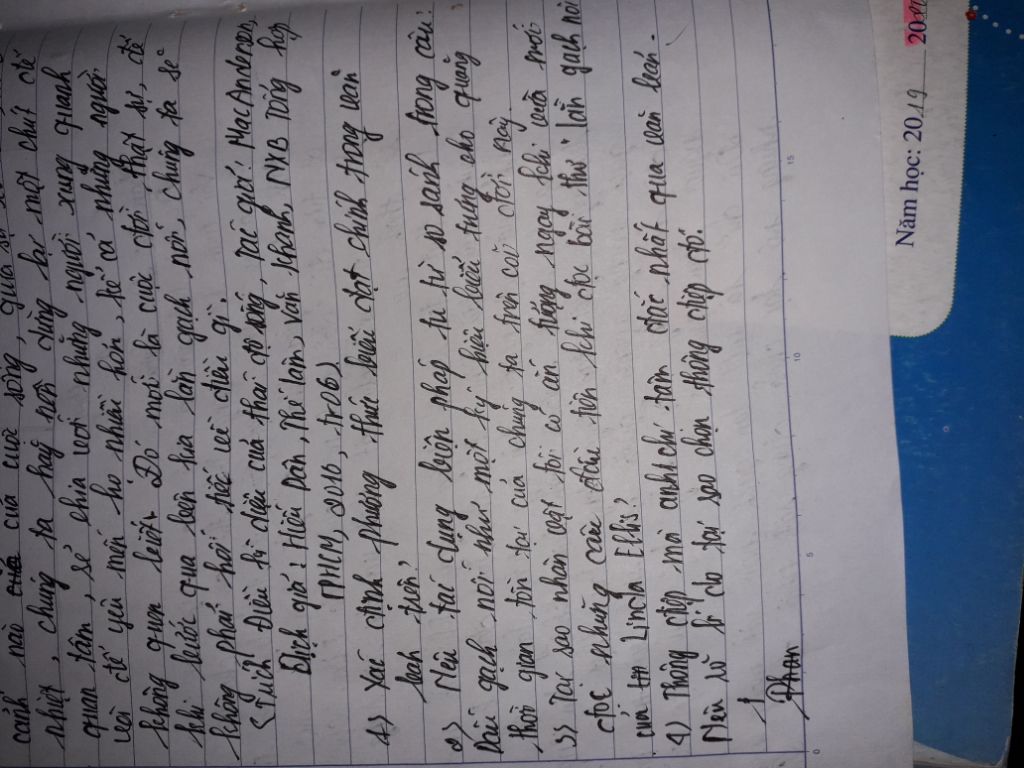 cảnh nào của cuộc sống, qua
nhịp, chúng ta hãy nên dừng lại một chút để
quan tâm, sẻ chia với những người xung quanh
và để yêu mến họ nhiều hơn, kể cả những người
không quen biết. Đó mới là cuộc đời thật sự, để
khi bước qua bên kia lằn gạch nối, chúng ta sẽ
không phải hối tiếc về điều gì.
(Trích Điều kì diệu của thái độ sống, tác giả: Mac Anderson,
Dịch giả: Hiếu Dân, Thế Lâm, Văn Khanh, NXB Tổng hợp
TPHCM, 2016, tr06)
1) Xác định phương thức biểu đạt chính trong văn
bản trên,
2) Nêu tác dụng biện pháp tu từ so sánh trong câu:
Dấu gạch nối như một ký hiệu biểu trưng cho quãng
thời gian tồn tại của chúng ta trên cõi đời này.
3) Tại sao nhân vật tôi có ấn tượng ngay khi vừa mới
đọc những câu đầu tiên khi đọc bài thơ "lằn gạch nối
của tg Linda Ellis?
4) Thông điệp mà anh/chị tâm đắc nhất qua văn bản.
Nêu rõ lí do tại sao chọn thông điệp đó.
Năm học: 2019 20